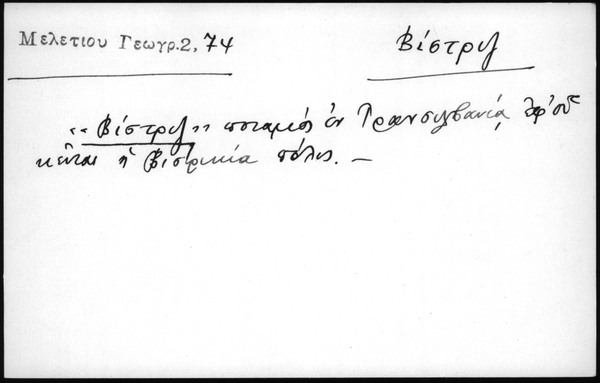 Μελετίου Γεωγρ.2, 74
Βίστριζ
«Βίστριζ» ποταμός ἐν Τρανσυλβανίᾳ, ἐφ' οὗ
κεῖται ἡ Βιστρικία πόλις. —